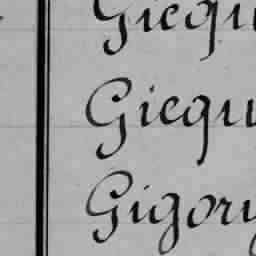 Gicqu
Gicqu
Gigory